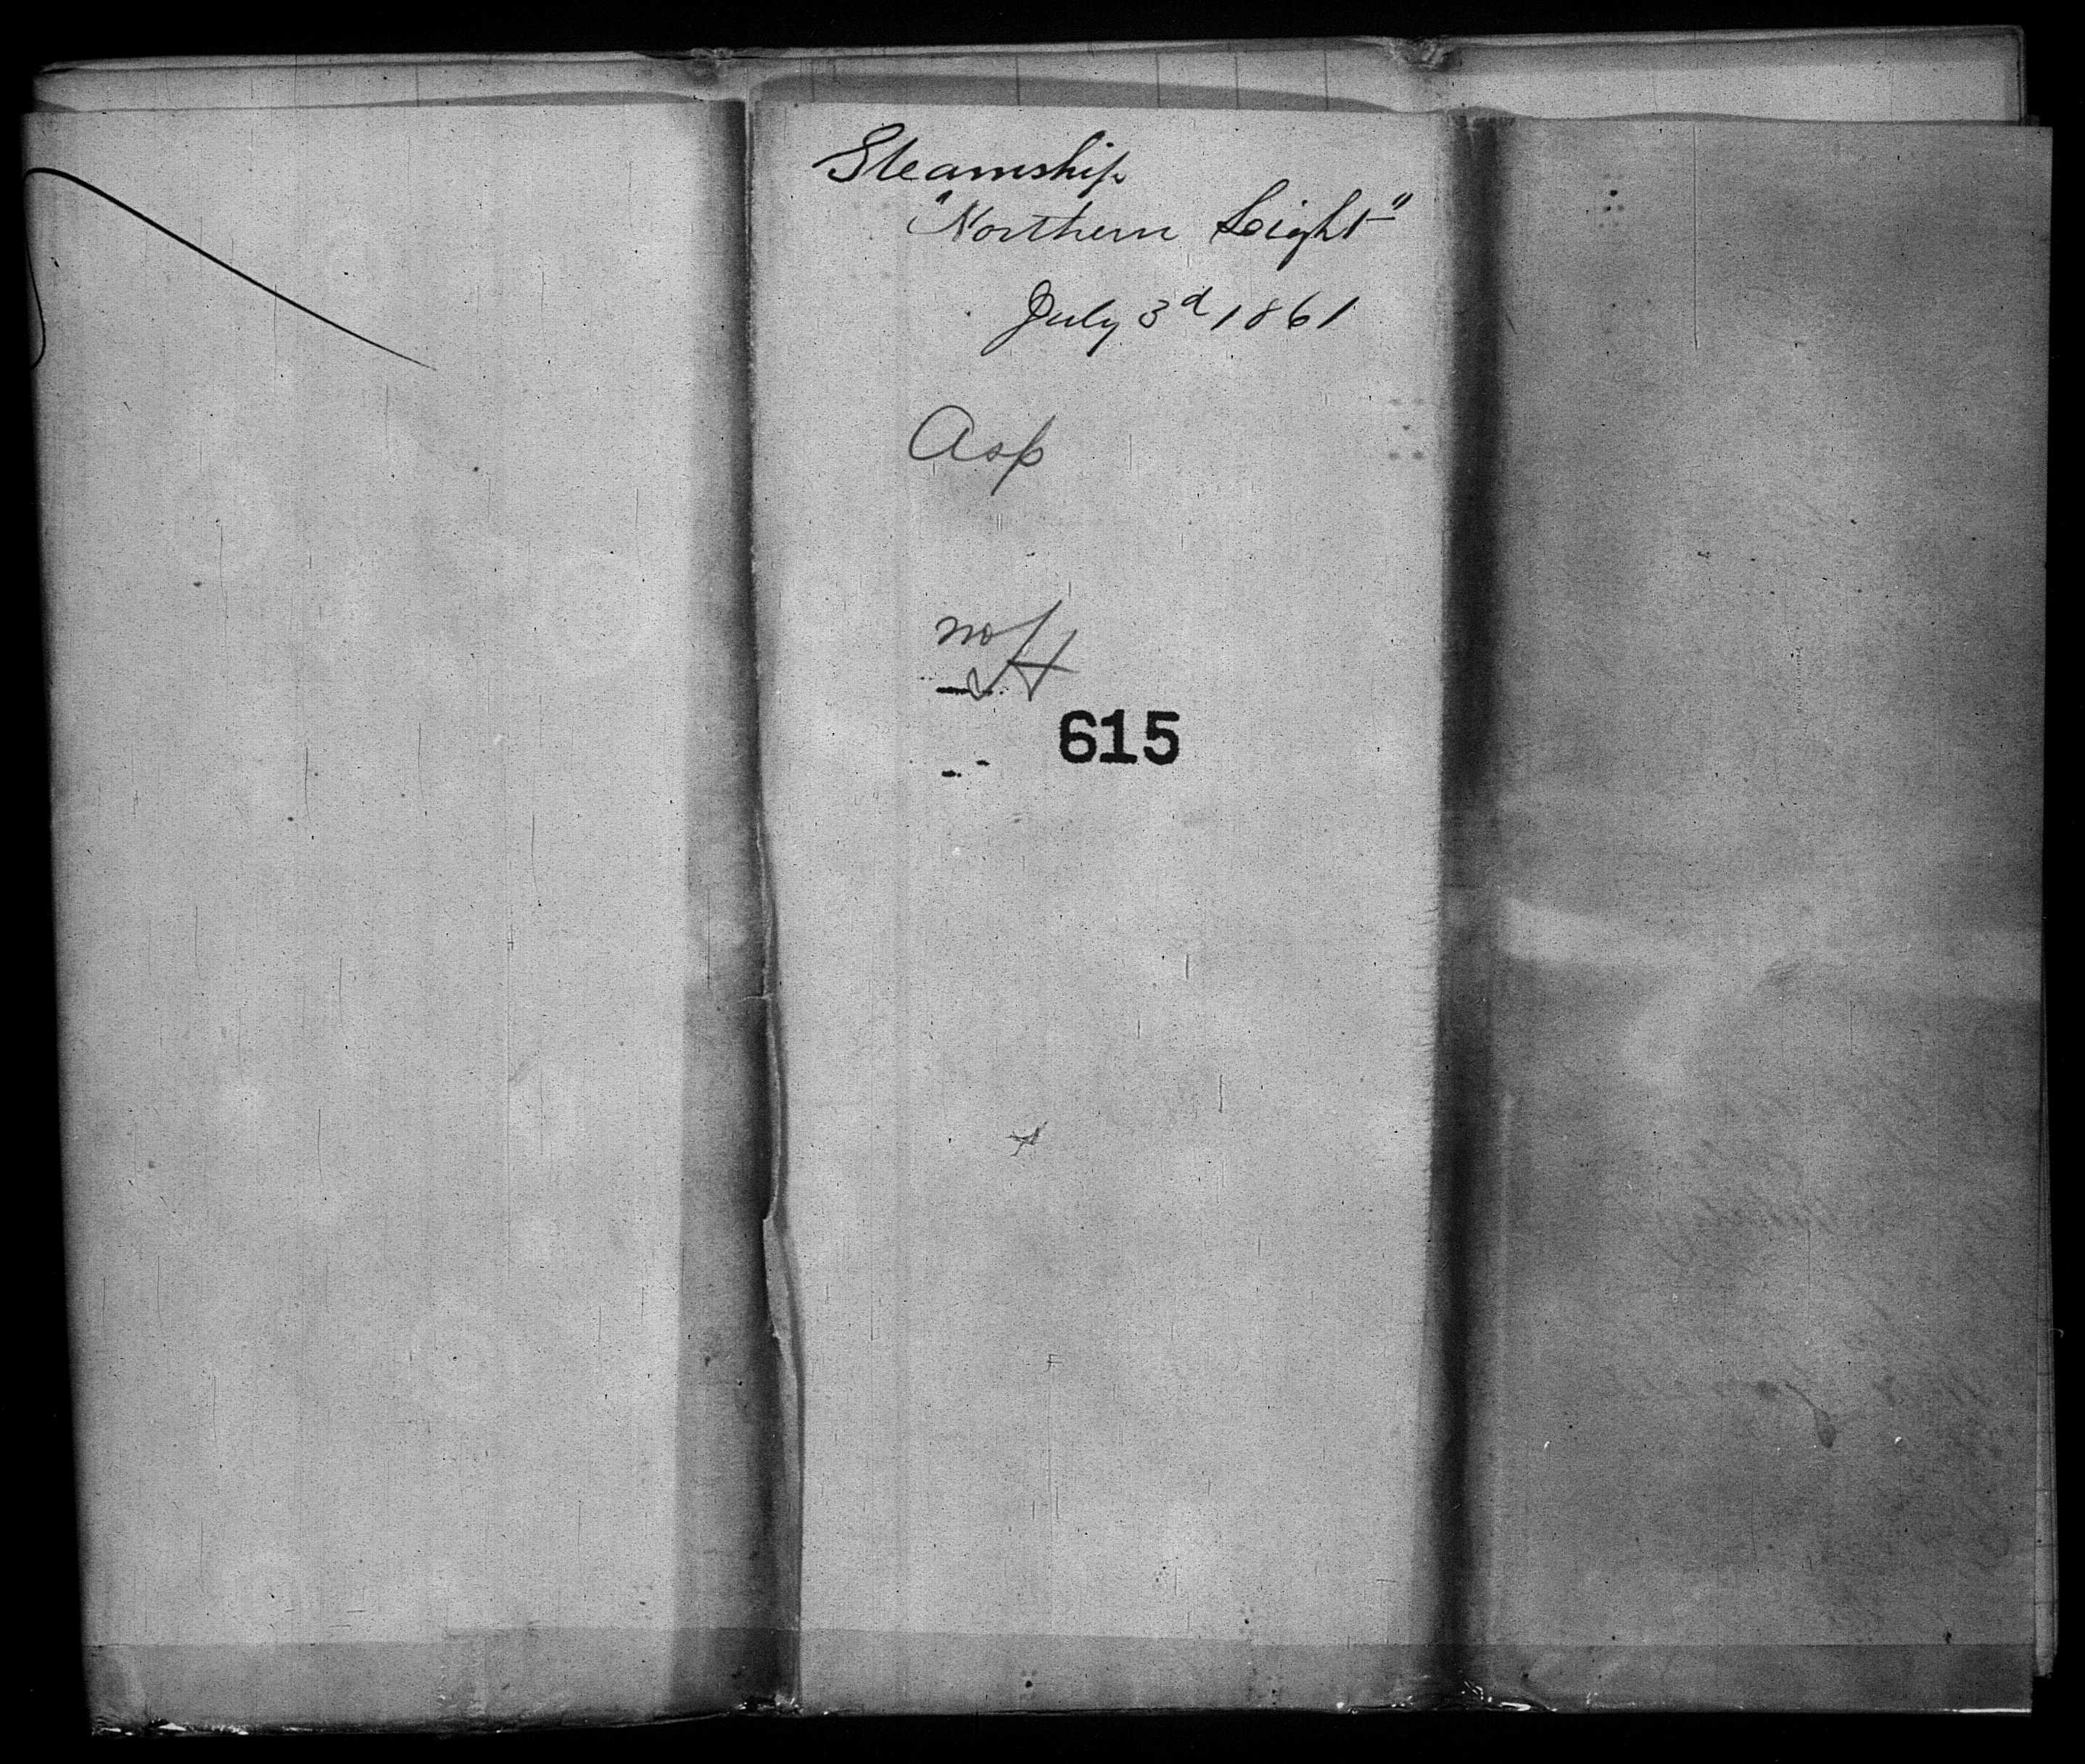 Steamship
"Northern Light"
July 3d 1861
Asp
615